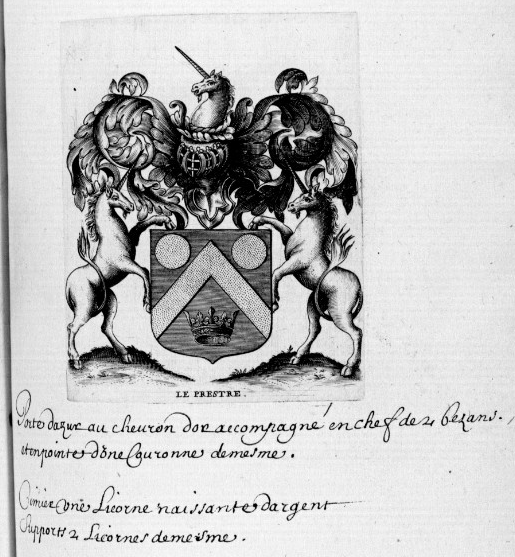 LE PRESTRE.
Porte dazur au cheuron dor accompagné en chef de 2 bezans,
et en pointe d'vne Couronne de mesme.
Cimier vne Licorne naissante dargent
Supports 2 Licornes de mesme.